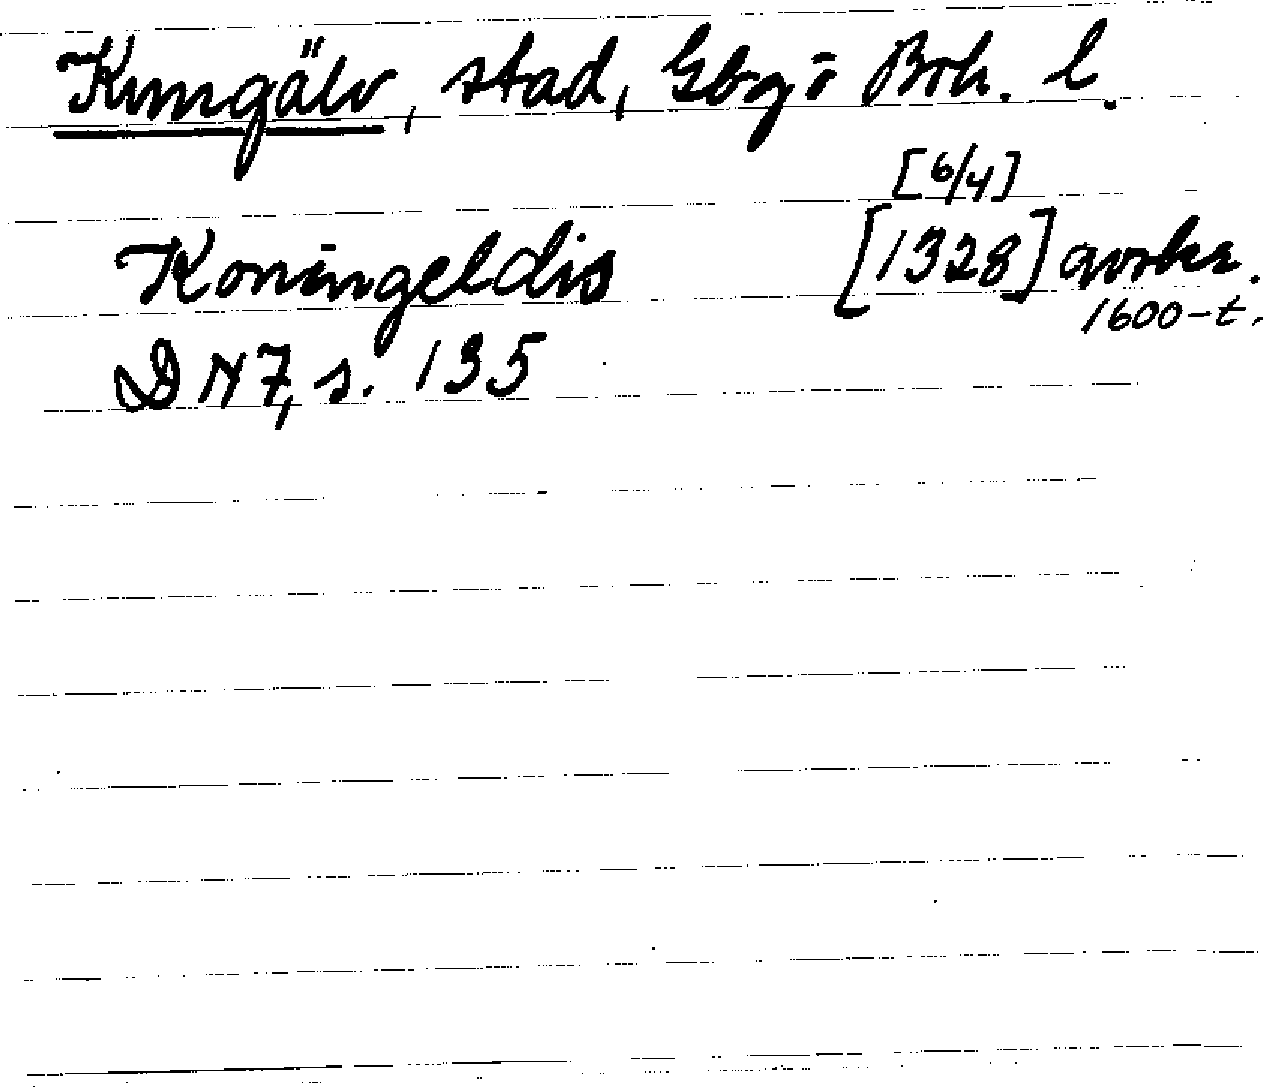 Kungälv, stad, Gbg o Boh. l.
[6/4]
Koningeldis [1328] avskr.
1600-t.
DN 7, s. 135